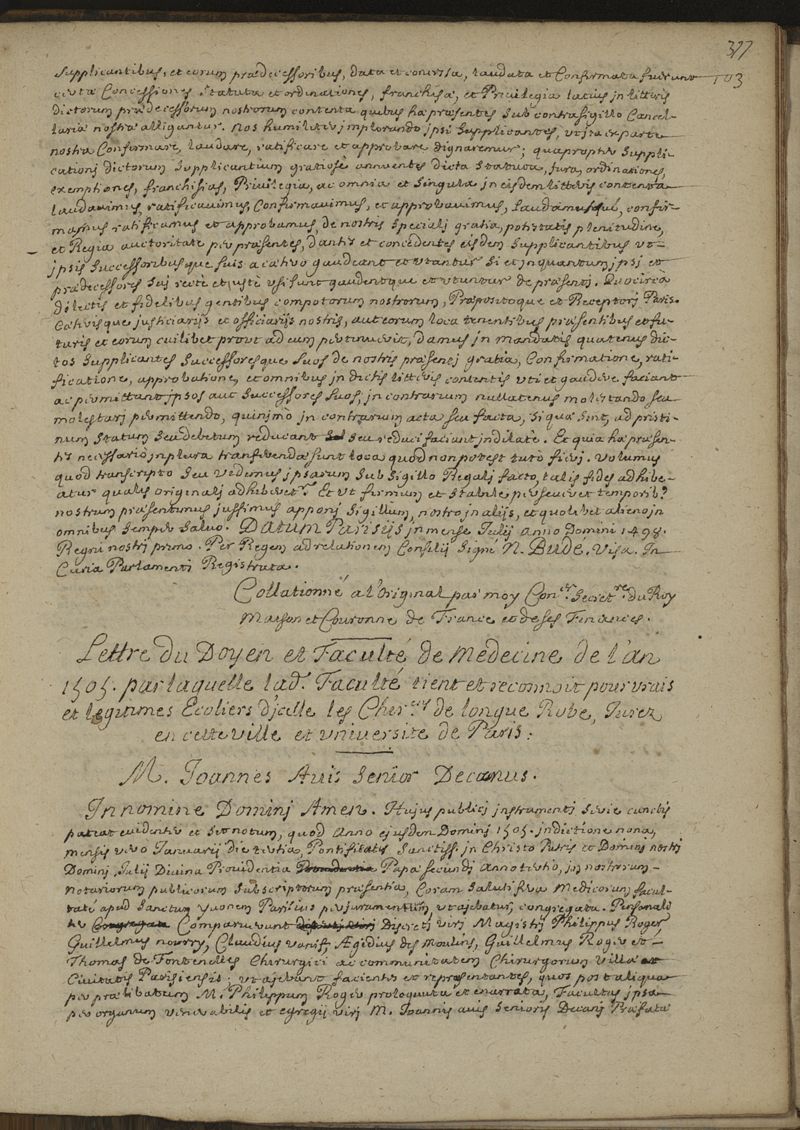 377
103
Supplicantibus, et eorum prædecessoribus, data et concessa, laudata et Confirmata fuerunt
certa Concessiones Statuta et ordinationes, franchisæ, et Privilegia latius jn litteris
dictorum prædecessorum nostrorum contenta quibus hæ præsentes sub contrasigillo Cancel-
lariæ nostræ alligantur. Nos humiliter jmplorando jpsi Supplicantes, ut ita ex parte
nostra Confirmare, laudare, ratificare et approbare dignaremur; quapropter Suppli-
cationj dictorum Supplicantium gratiose annuentes dicta Statuta, Jura, ordinationes,
exemptiones, franchisias, Privilegia, ac omnia et Singula jn eisdem litteris contenta
laudavimus ratificavimus, Confirmavimus, et approbavimus, Laudamusque, confir-
mamus ratificamus et approbamus, de nostris specialj gratia, potestatis plenitudine,
et Regia auctoritate per præsentes, dantes et concedentes eisdem Supplicantibus ut
jpsis Successoribusque suis ac ... gaudeant et utantur si et jnquantum jpsj et
prædecessores Suj recte et juste usi sunt gaudentque et utuntur de præsentj. Quocirca
dilectis et fidelibus gentibus compotorum nostrorum, Præpositoque et Receptorj Paris.
Cæterisque justiciarijs et officiarijs nostris, aut eorum loca tenentibus præsentibus et fu-
turis et eorum cuilibet prout ad eum pertinuerit, damus jn mandatis quatenus dic-
tos Supplicantes Successoresque Suos de nostris præsenti gratia, Confirmatione, rati-
ficatione, approbatione, et omnibus jn dictis litteris contentis uti et gaudere faciant
ac permittant jpsos aut Successores Suos, jn contrarium nullatenus molestando seu
molestarj permittendo, quinjmo jn contrarium acta seu facta, si quæ sint, ad pristi-
num statum seu debitum reducant seu reduci faciant jndilate. Et quia hæ præsen-
tes necessario jn plura transferenda sunt loca quod non potest tuto fierj. Volumus
quod transcripto seu Vidimus jpsarum sub Sigillo Regalj facto, talis fides adhibe-
atur qualis originalj adhiberetr. Et ut firmum et stabile perseveret temporib?
nostrum præsentibus jussimus apponj Sigillum, nostro jn alijs, et quolibet alieno jn
omnibus Semper Salvo. Datum Parisijs jn mense Julij anno Domini 1498.
Regni nostrj primo. Per Regem ad relationem Consilij Signé N. Budé. Visa. In
Curia Parlamenti Registrata.
Collationné a l'Original par moy Coner. Secretre. du Roy
Maison et Couronne de France et de ses Finances.
Lettre du Doyen et Faculté de Medecine de l'an
1505. par laquelle lad. Faculté tient et reconnoit pour vrais
et legitimes Ecoliers djcelle les Chergs de longue Robe, Jurez
en cette ville et université de Paris:
M. Joannes Avis Senior Decanus.
In nomine Dominj Amen. Hujus publicj jnstrumentj serie cunctis
pateat evidenter et sit notum, quod Anno ejusdem Dominj 1505. jndictione nona,
mensis vero Januarij die tertia, Pontificatus Sanctiss. jn Christo Patris et Dominj nostrj
Dominj Julij Divina Providentia Papæ secundj anno tertio, jn nostrorum
notariorum publicorum Subscriptorum præsentia, Coram Saluberrima Medicorum facul-
tate apud Sanctum Yvonem Parisius per juramentum, ut ajebatur, congregata. Personali
ter Congregata Comparuerunt Discretj virj Magistrj Philippus Roger
Guillelmus nourry, Claudius vanif, Ægidius des Moulins, Guillelmus Roger et
Thomas de Fontenelles Chirurgici ac communitatem Chirurgorum Villæ et
Civitatis Parisiensis. ut ajebant facientes et repræsentantes, quos post aliqua
per prælibatum M. Philippum Roger proloquuta et enarrata, Facultas jpsa
per organum venerabilis et egregij virj M. Joannis avis Senioris Decanj Præfatæ